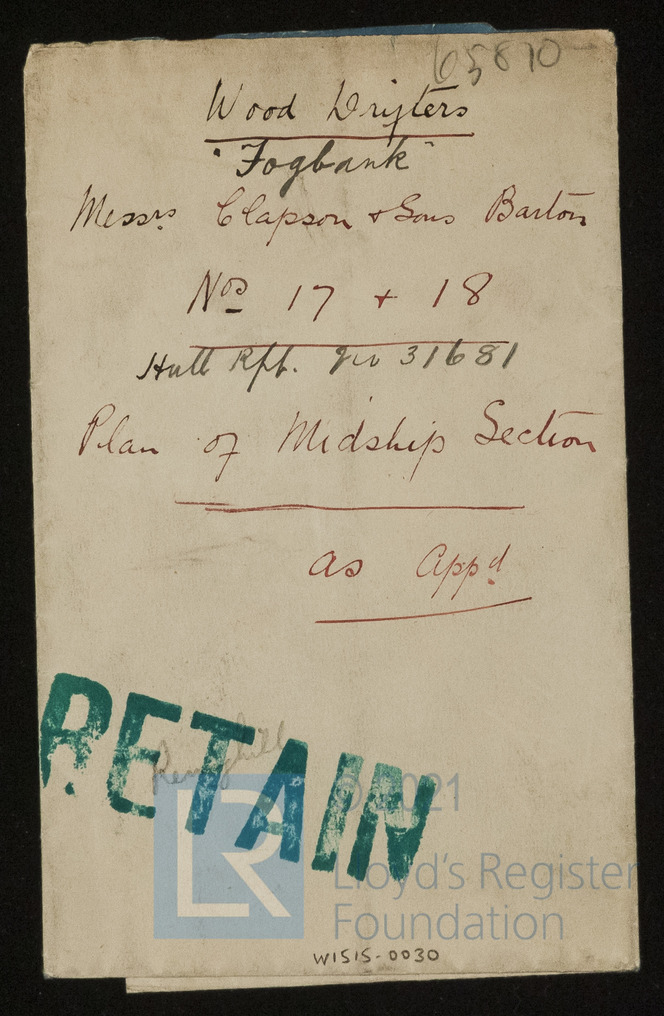 65870
Wood Drifters
"Fogbank"
Messrs. Clapson & Sons Barton
Nos 17 + 18
Hull Rpt. 31681
Plan of Midship Section
as Appd.
RETAIN
LR
© 2021
Lloyd's Register
Foundation
W1515-0030